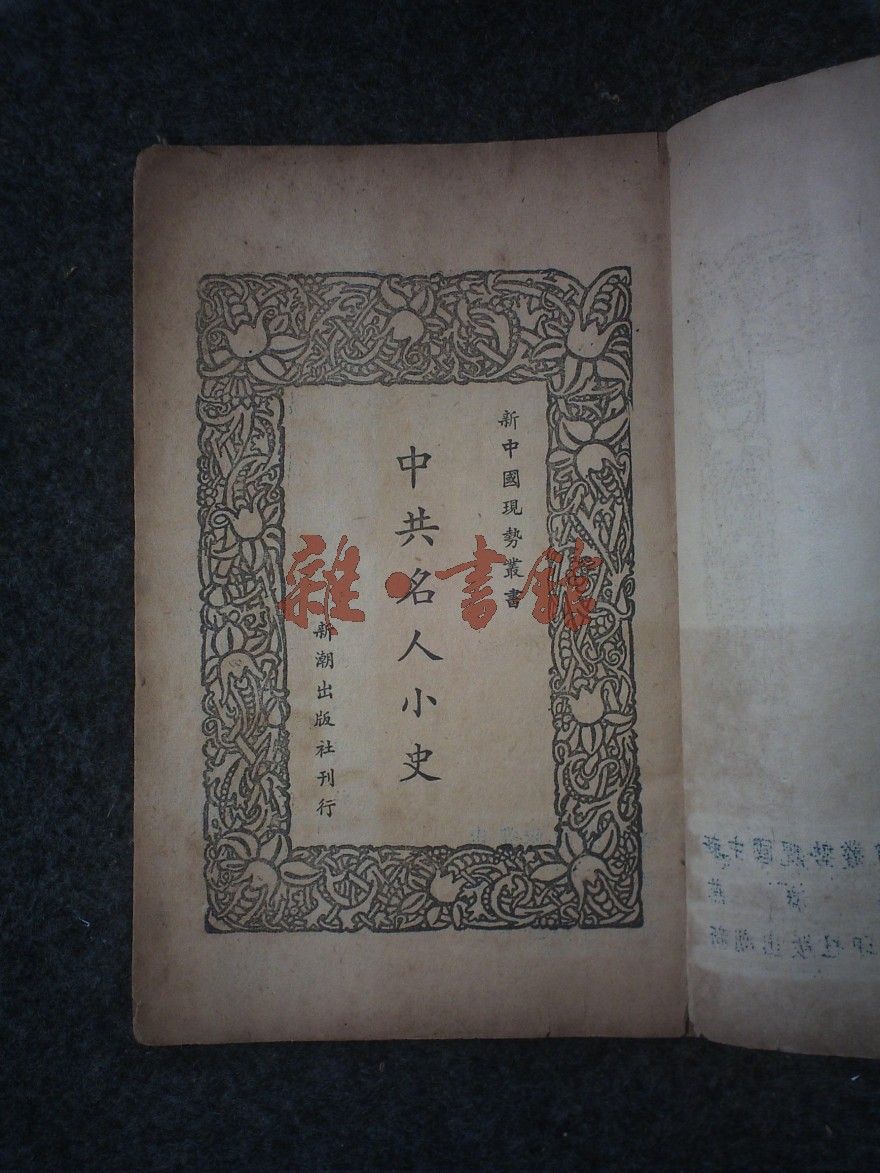 新中國現勢叢書
中共名人小史
新潮出版社刊行
雜·書館